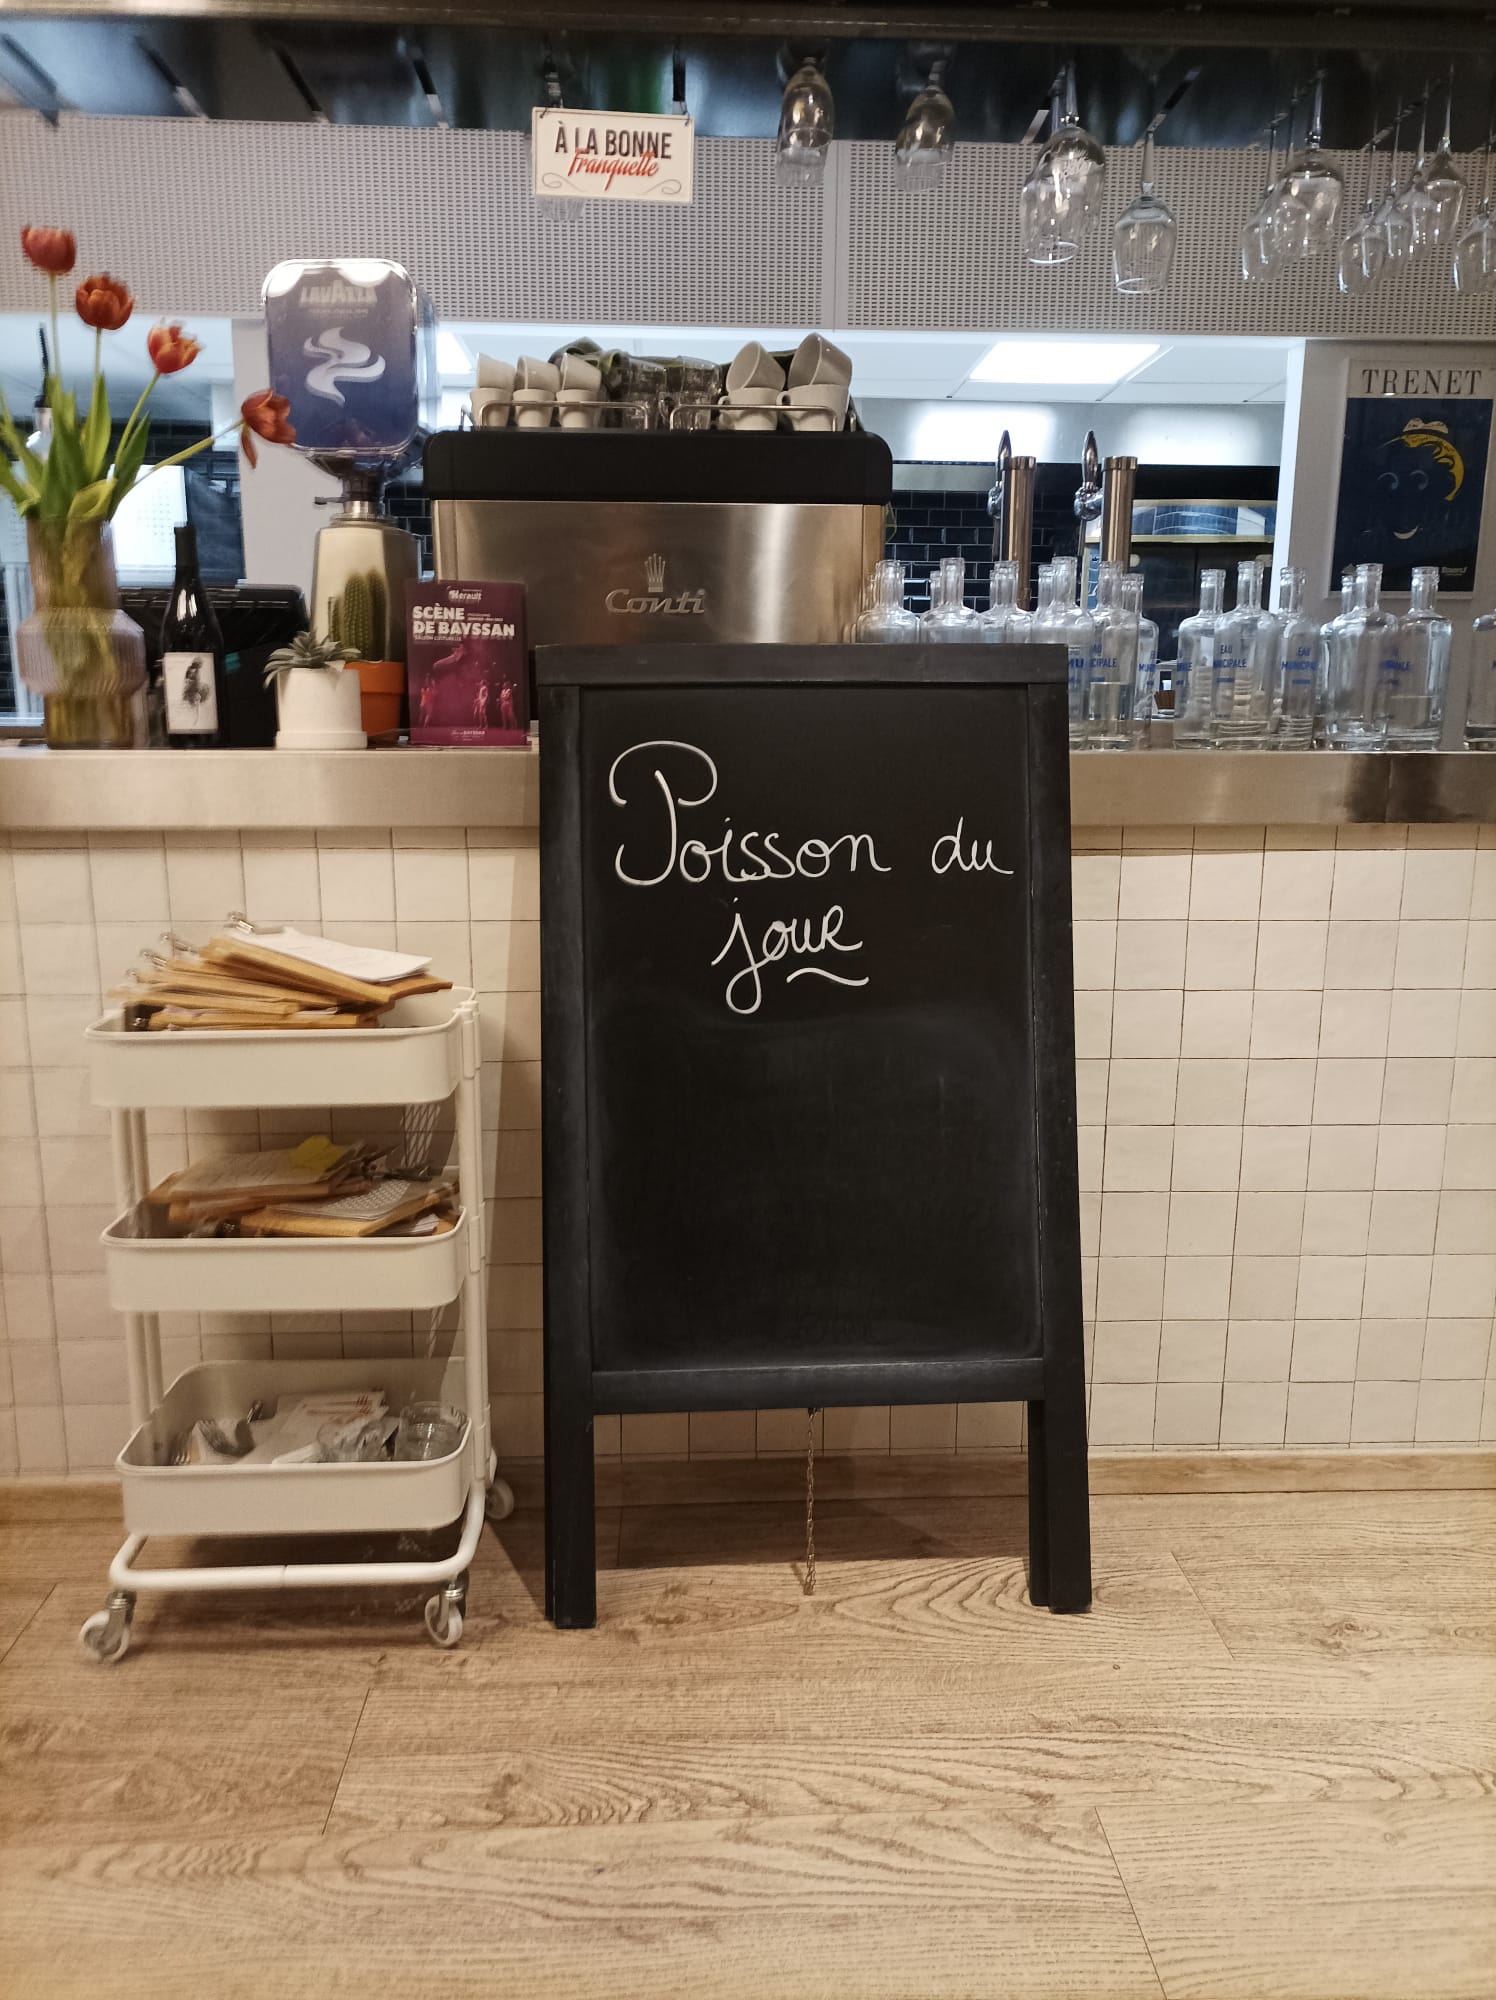 À LA BONNE
Franquette
LAVAZZA
TRENET
Conti
Hérault
SCÈNE
DE BAYSSAN
EAU
MUNICIPALE
EAU
MUNICIPALE
Poisson du
jour